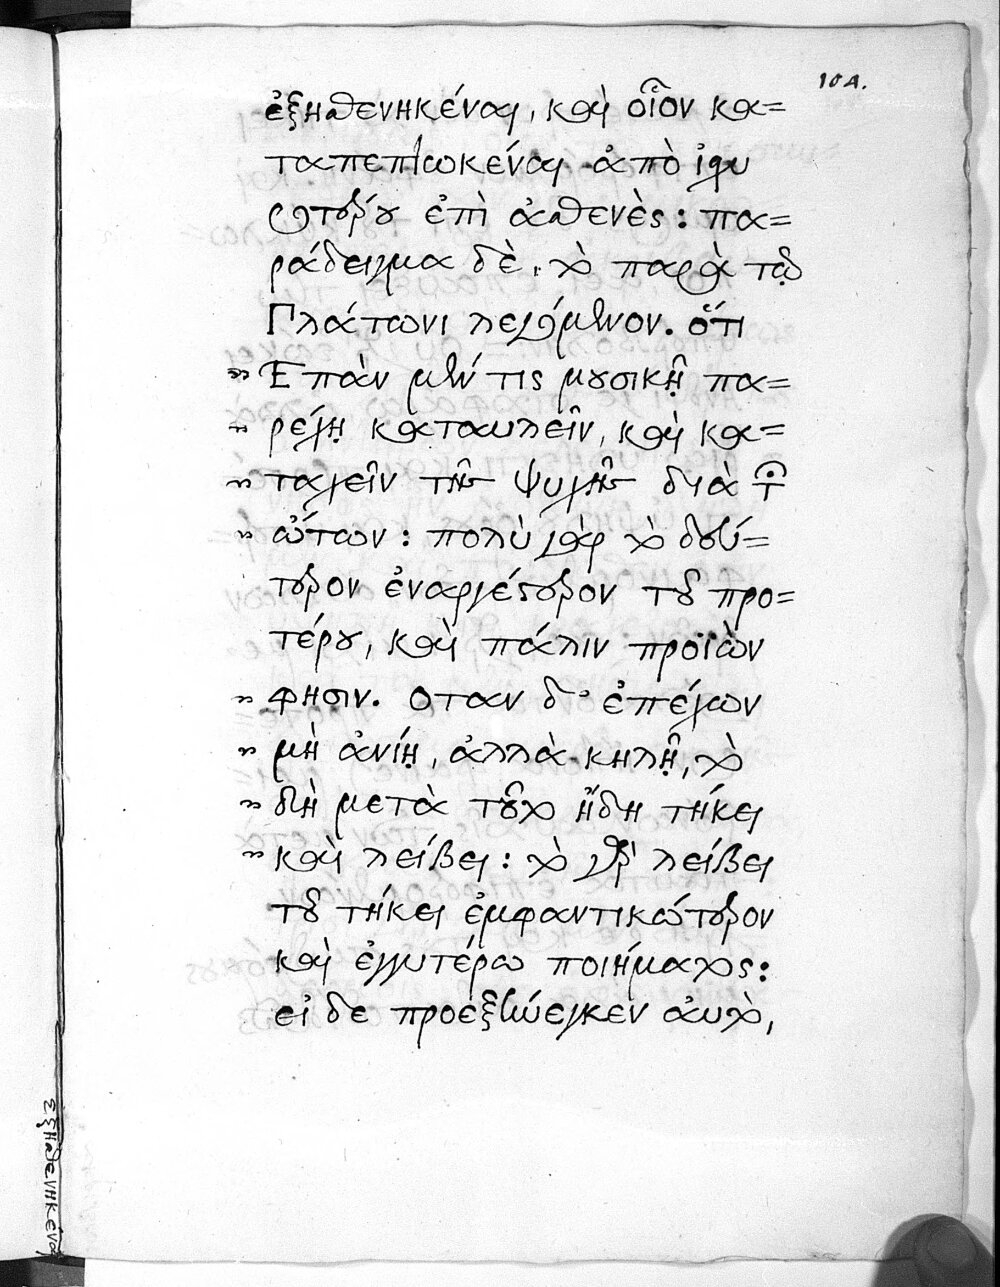 104.
ἐξησθενηκέναι, καὶ οἷον κα=
ταπεπτωκέναι ἀπὸ ἰσχυ
ροτέρου ἐπὶ ἀσθενές: πα=
ράδειγμα δὲ, τὸ παρὰ τῷ
Πλάτωνι λεγόμενον. ὅτι
" Ἐπὰν μέν τις μουσικῇ πα=
" ρέχῃ καταυλεῖν, καὶ κα=
" ταχεῖν τῆς ψυχῆς διὰ τῶν
" ὤτων: πολὺ γὰρ τὸ δεύ=
τερον ἐναργέστερον τοῦ προ=
τέρου, καὶ πάλιν προϊὼν
" φησιν. Οταν δ' ἐπέχων
" μὴ ἀνίῃ, ἀλλὰ κηλῇ, τὸ
" δὴ μετὰ τοῦτο ἤδη τήκει
" καὶ λείβει: τὸ γὰρ λείβει
τοῦ τήκει ἐμφαντικώτερον
καὶ ἐγγυτέρω ποιήματος:
εἰ δε προεξήνεγκεν αὐτὸ,
ἐξησθενηκέναι